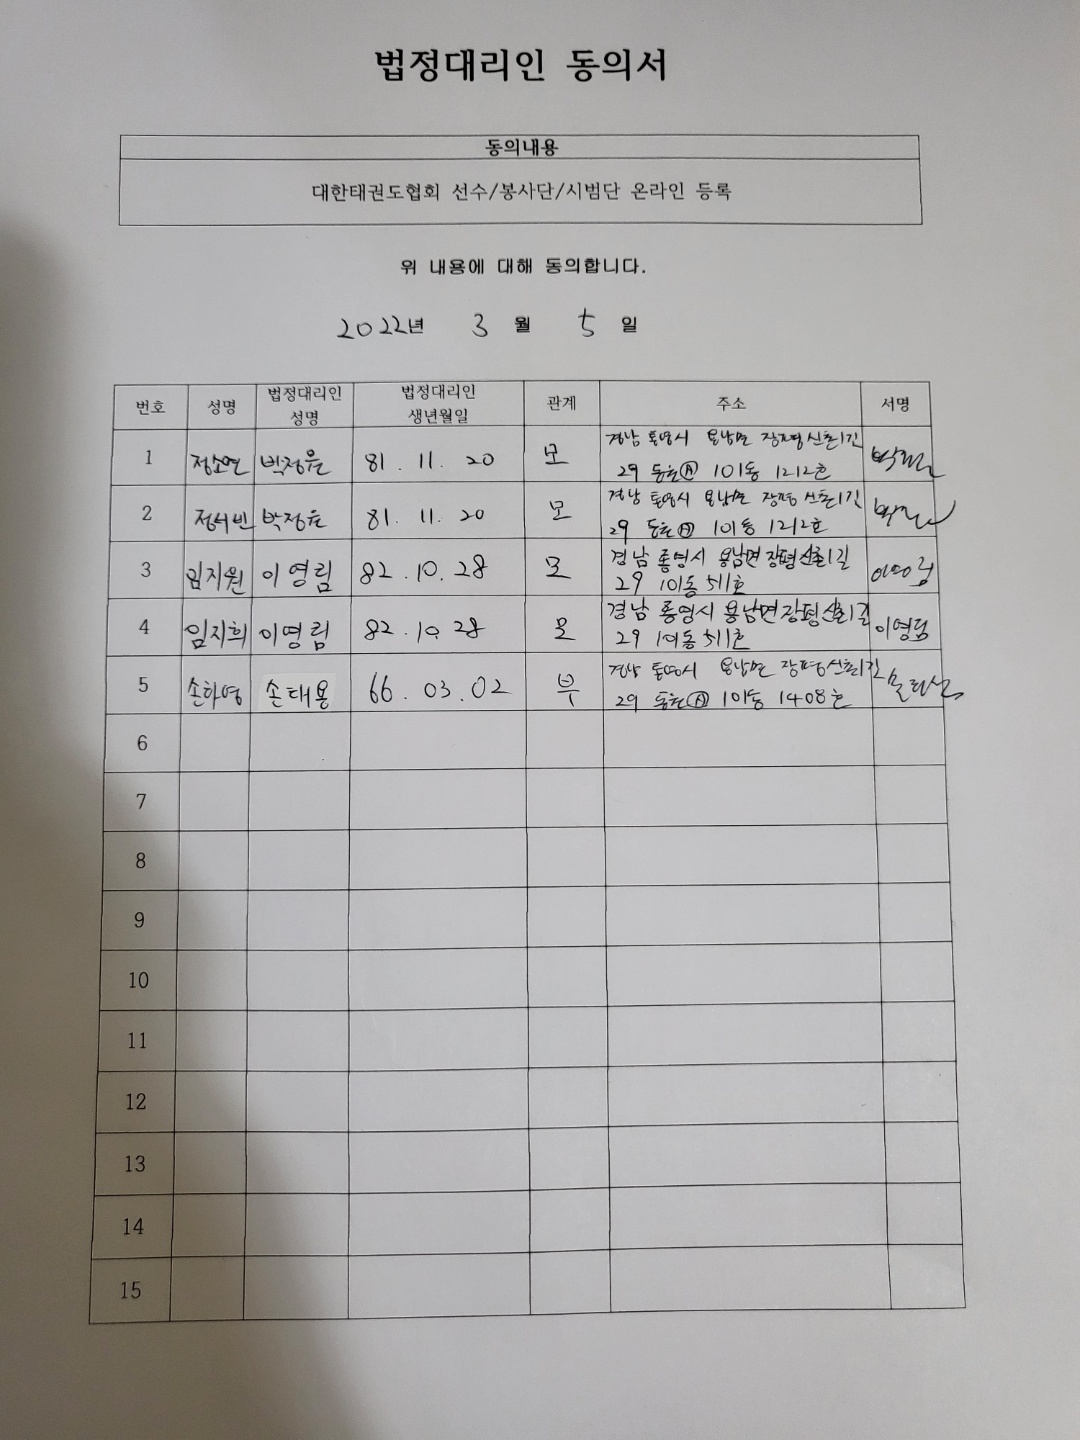 법정대리인 동의서
동의내용
대한태권도협회 선수/봉사단/시범단 온라인 등록
위 내용에 대해 동의합니다.
2022년 3 월 5 일
번호 성명 법정대리인 성명 법정대리인 생년월일 관계 주소 서명
1 정소연 박정윤 81. 11. 20 모 경남 통영시 용남면 장평신촌1길
29 동원Ⓐ 101동 1212호
2 정서빈 박정윤 81. 11. 20 모 경남 통영시 용남면 장평신촌1길
29 동원Ⓐ 101동 1212호
3 임지원 이영림 82.10.28 모 경남 통영시 용남면 장평신촌1길
29 101동 511호 이영림
4 임지희 이영림 82.10.28 모 경남 통영시 용남면 장평신촌1길
29 101동 511호 이영림
5 손하영 손태용 66.03.02 부 경남 통영시 용남면 장평신촌1길
29 동원Ⓐ 101동 1408호
6
7
8
9
10
11
12
13
14
15